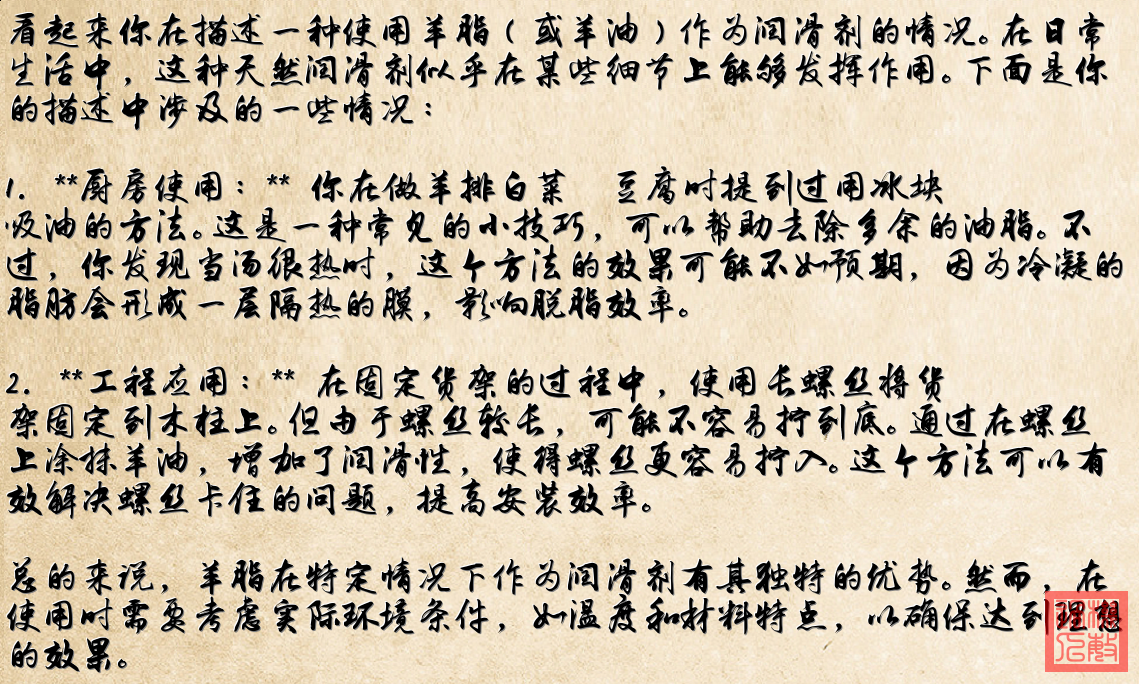 看起来你在描述一种使用羊脂（或羊油）作为润滑剂的情况。在日常
生活中，这种天然润滑剂似乎在某些细节上能够发挥作用。下面是你
的描述中涉及的一些情况：
1. **厨房使用：** 你在做羊排白菜 豆腐时提到过用冰块
吸油的方法。这是一种常见的小技巧，可以帮助去除多余的油脂。不
过，你发现当汤很热时，这个方法的效果可能不如预期，因为冷凝的
脂肪会形成一层隔热的膜，影响脱脂效率。
2. **工程应用：** 在固定货架的过程中，使用长螺丝将货
架固定到木柱上。但由于螺丝较长，可能不容易拧到底。通过在螺丝
上涂抹羊油，增加了润滑性，使得螺丝更容易拧入。这个方法可以有
效解决螺丝卡住的问题，提高安装效率。
总的来说，羊脂在特定情况下作为润滑剂有其独特的优势。然而，在
使用时需要考虑实际环境条件，如温度和材料特点，以确保达到理想
的效果。